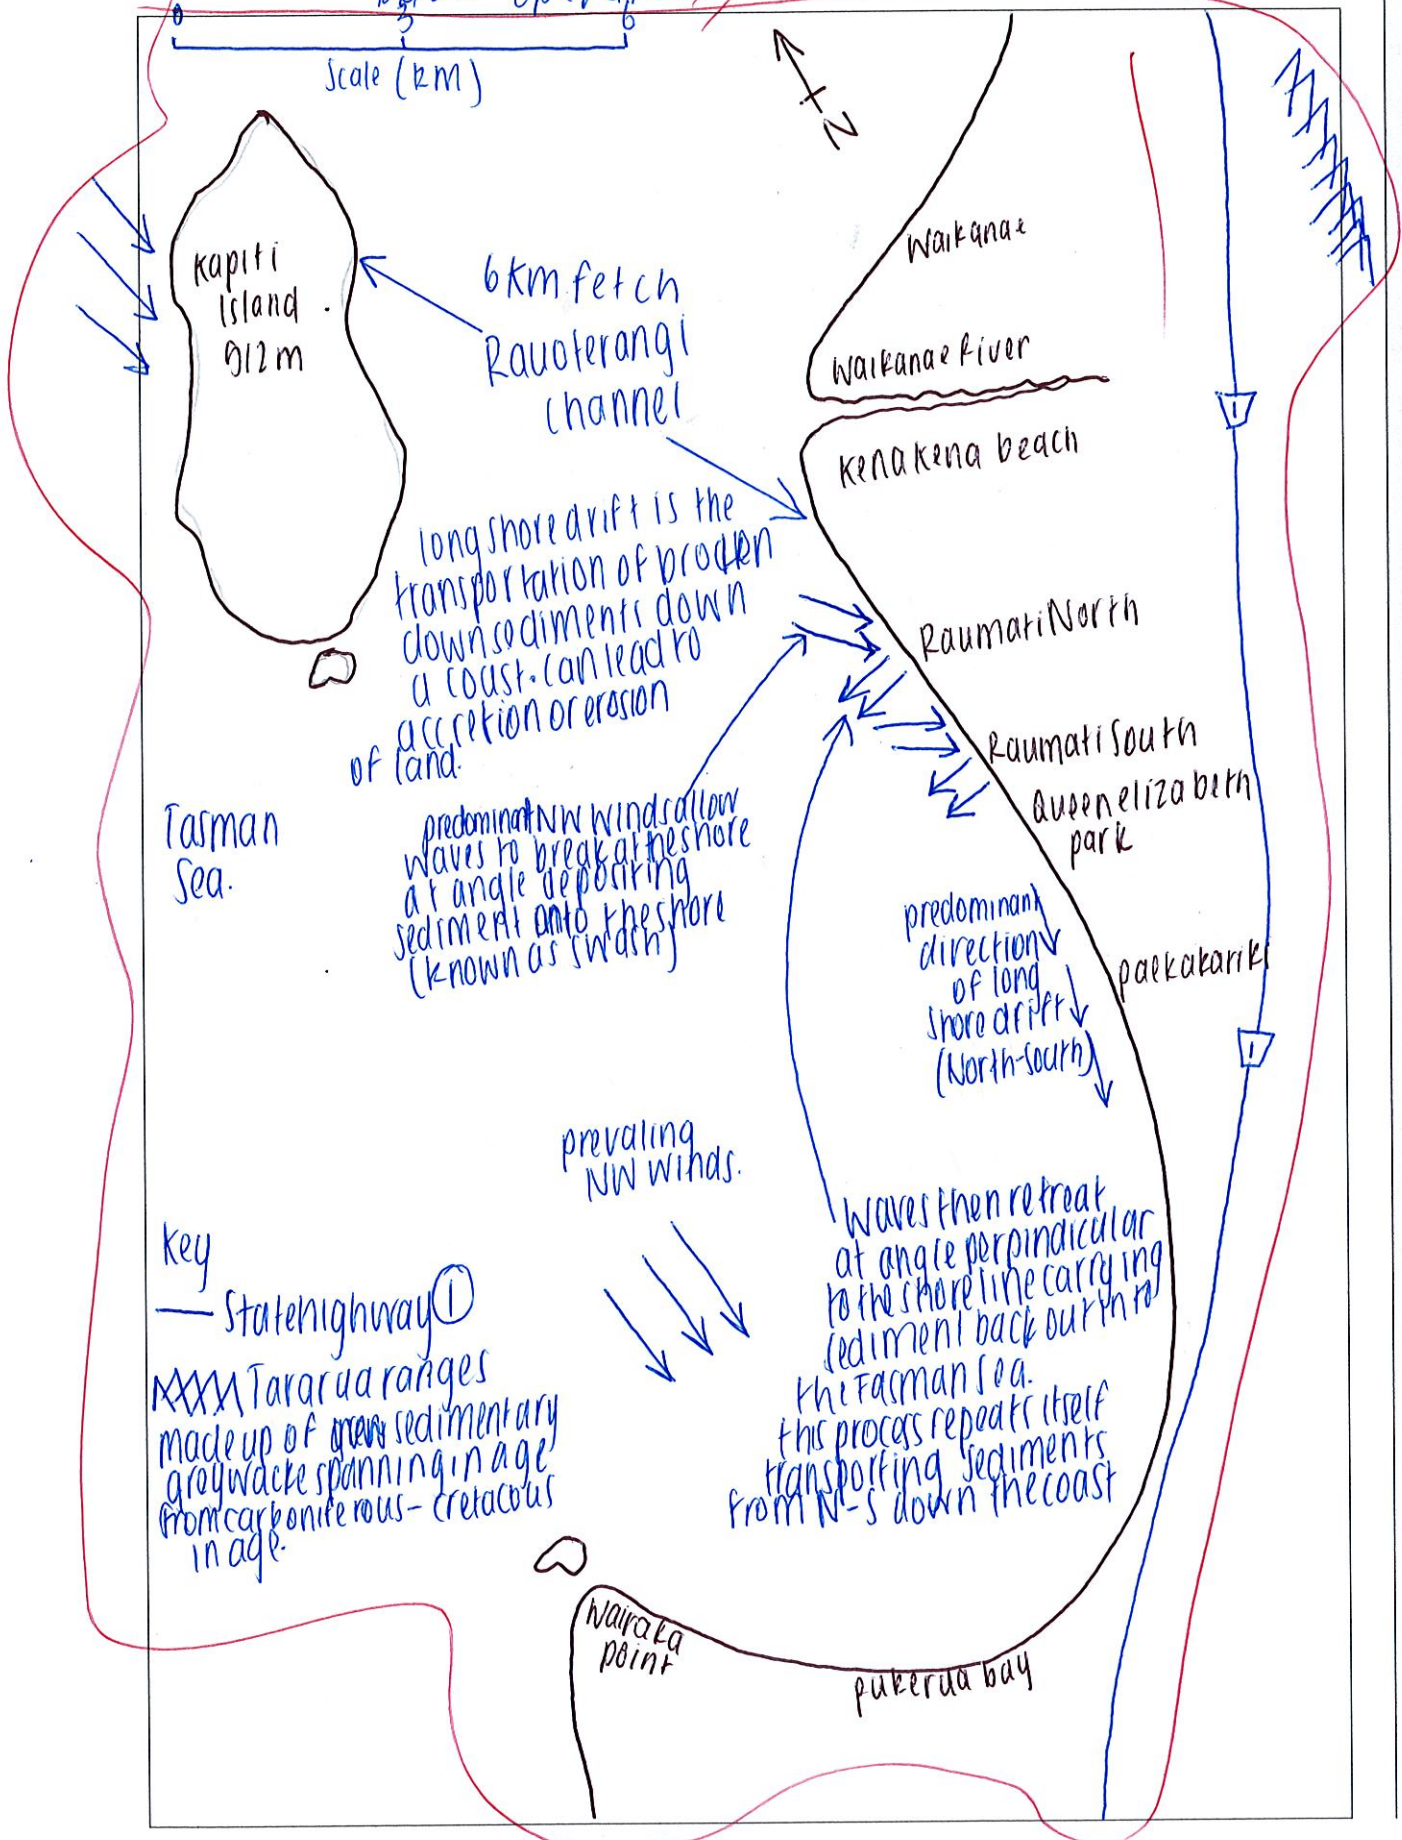 0
3
6
Scale (km)
N
Kapiti
Island
912m
6km fetch
Rauoterangi
channel
Waikanae
Waikanae River
Kenakena beach
1
long shore drift is the
transportation of brocken
down sediments down
a coast. can lead to
accretion or erosion
of land.
Raumati North
Raumati South
Queen elizabeth
park
Tasman
Sea.
predominant NW winds allow
waves to break at the shore
at angle depositing
sediment onto the shore
(known as swash)
predominant
direction
of long
shore drift
(North-South)
paekakariki
1
prevaling
NW winds.
Waves then retreat
at angle perpindicular
to the shore line carrying
sediment back out into
the Tasman Sea.
this process repeats itself
transporting sediments
from N-S down the coast
Key
State highway 1
Tararua ranges
made up of sedimentary
greywacke spanning in age
from carboniferous - cretacous
in age.
Wairaka
point
pukerua bay